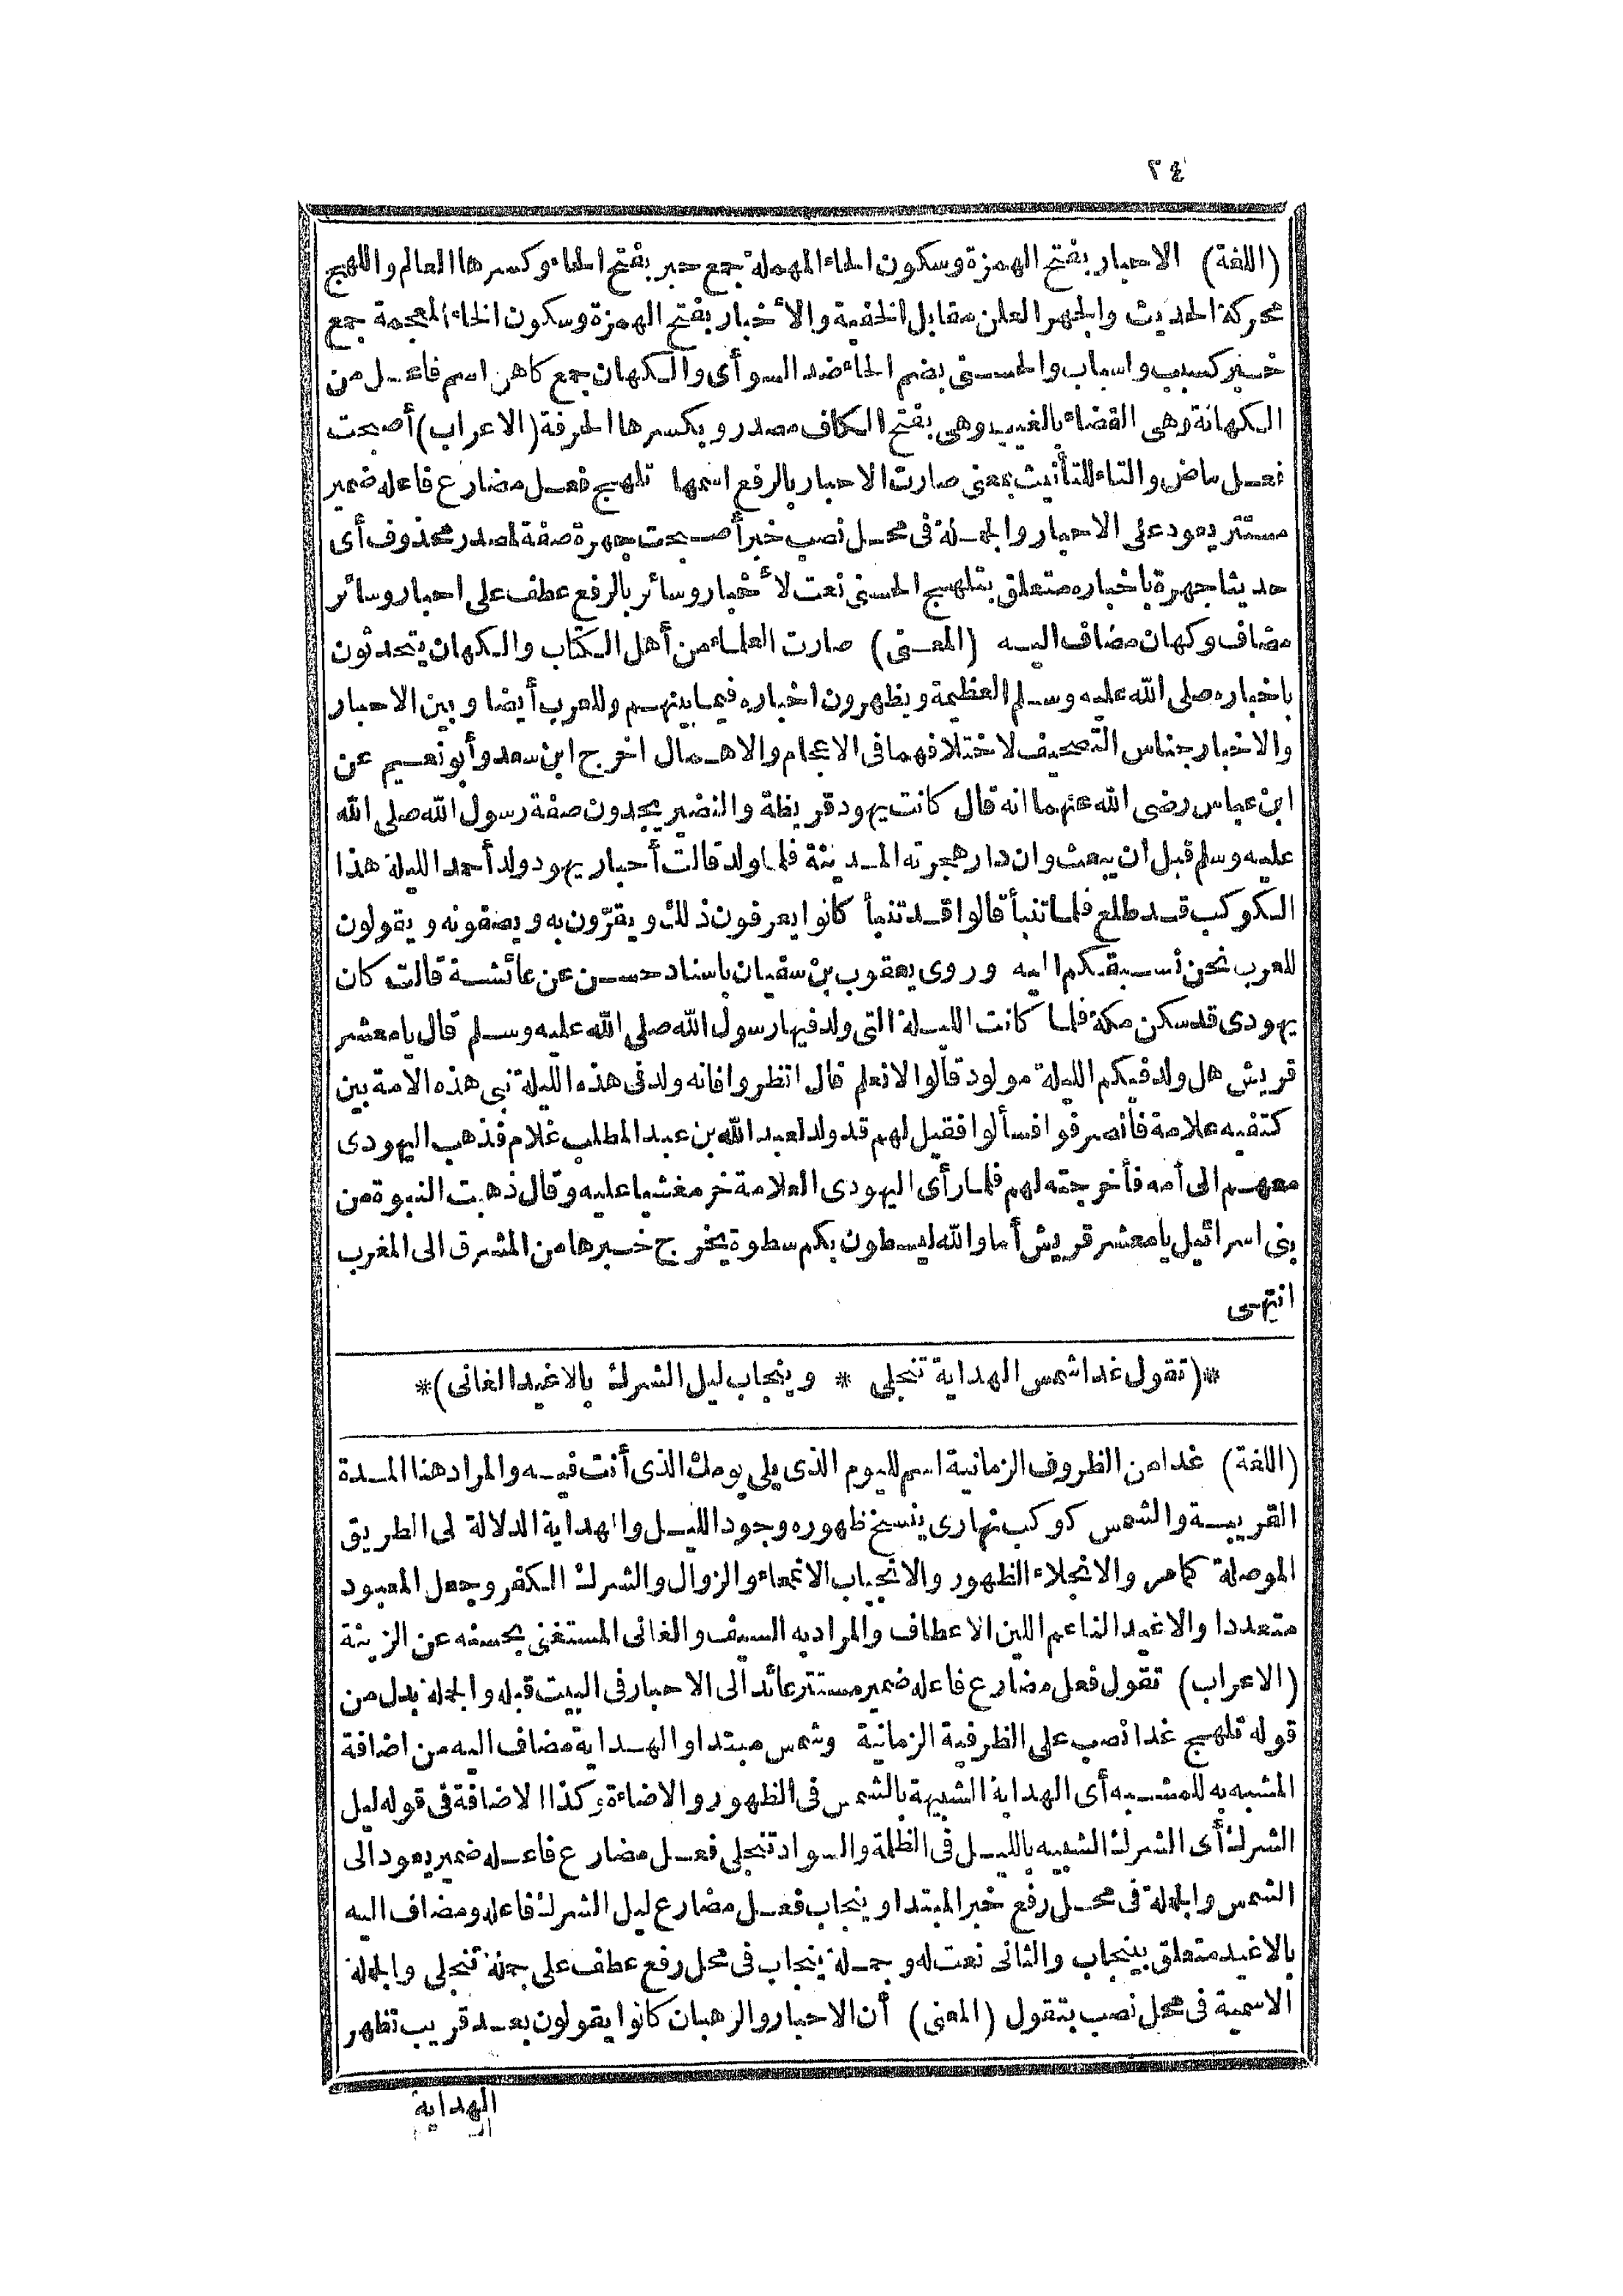 ٢٤
(اللغة) الاحبار بفتح الهمزة وسكون الحاء المهملة جمع حبر بفتح الحاء وكسرها العالم واللهج
محركة الحديث والجهر العلن مقابل الخفية والأخبار بفتح الهمزة وسكون الخاء المعجمة جمع
خبر كسبب واسباب والحسنى بضم الحاء ضد السوأى والكهان جمع كاهن اسم فاعل من
الكهانة وهى القضاء بالغيب وهى بفتح الكاف مصدر وبكسرها الحرفة (الاعراب) أصبحت
فعل ماض والتاء للتأنيث بمعنى صارت الاحبار بالرفع اسمها تلهج فعل مضارع فاعله ضمير
مستتر يعود على الاحبار والجملة فى محل نصب خبر أصبحت جهرة صفة لمصدر محذوف أى
حديثا جهرة باخباره متعلق بتلهج الحسنى نعت لأخبار وسائر بالرفع عطف على احبار وسائر
مضاف وكهان مضاف اليه (المعنى) صارت العلماء من أهل الكتاب والكهان يتحدثون
باخباره صلى الله عليه وسلم العظيمة ويظهرون اخباره فيما بينهم وللعرب أيضا وبين الاحبار
والاخبار جناس التصحيف لاختلافهما فى الاعجام والاهمال اخرج ابن سعد وأبو نعيم عن
ابن عباس رضى الله عنهما انه قال كانت يهود قريظة والنضير يجدون صفة رسول الله صلى الله
عليه وسلم قبل ان يبعث وان دار هجرته المدينة فلما ولد قالت أحبار يهود ولد أحمد الليلة هذا
الكوكب قد طلع فلما تنبأ قالوا قد تنبأ كانوا يعرفون ذلك ويقرّون به ويصفونه ويقولون
للعرب نحن نسبقكم اليه وروى يعقوب بن سفيان باسناد حسن عن عائشة قالت كان
يهودى قد سكن مكة فلما كانت الليلة التى ولد فيها رسول الله صلى الله عليه وسلم قال يا معشر
قريش هل ولد فيكم الليلة مولود قالوا لا نعلم قال انظروا فانه ولد فى هذه الليلة نبى هذه الامة بين
كتفيه علامة فأنصرفوا فسألوا فقيل لهم قد ولد لعبد الله بن عبد المطلب غلام فذهب اليهودى
معهم الى أمه فأخرجته لهم فلما رأى اليهودى العلامة خر مغشيا عليه وقال ذهبت النبوة من
بنى اسرائيل يا معشر قريش أما والله ليسطون بكم سطوة يخرج خبرها من المشرق الى المغرب
انتهى
*(تقول غدا شمس الهداية تنجلى * وينجاب ليل الشرك بالاغيد الغانى)*
(اللغة) غدا من الظروف الزمانية اسم لليوم الذى يلى يومك الذى أنت فيه والمراد هنا المدة
القريبة والشمس كوكب نهارى ينسخ ظهوره وجود الليل والهداية الدلالة لى الطريق
الموصلة كما مر والانجلاء الظهور والانجياب الانمحاء والزوال والشرك الكفر وجعل المعبود
متعددا والاغيد الناعم اللين الاعطاف والمراد به السيف والغانى المستغنى بحسنه عن الزينة
(الاعراب) تقول فعل مضارع فاعله ضمير مستتر عائد الى الاحبار فى البيت قبله والجملة بدل من
قوله تلهج غدا نصب على الظرفية الزمانية وشمس مبتدا والهداية مضاف اليه من اضافة
المشبه به للمشبه أى الهداية الشبيهة بالشمس فى الظهور والاضاءة وكذا الاضافة فى قوله ليل
الشرك أى الشرك الشبيه بالليل فى الظلمة والسواد تنجلى فعل مضارع فاعله ضمير يعود الى
الشمس والجملة فى محل رفع خبر المبتدا وينجاب فعل مضارع ليل الشرك فاعله ومضاف اليه
بالاغيد متعلق بينجاب والثانى نعت له وجملة ينجاب فى محل رفع عطف على جملة تنجلى والجملة
الاسمية فى محل نصب بتقول (المعنى) أن الاحبار والرهبان كانوا يقولون بعد قريب تظهر
الهداية